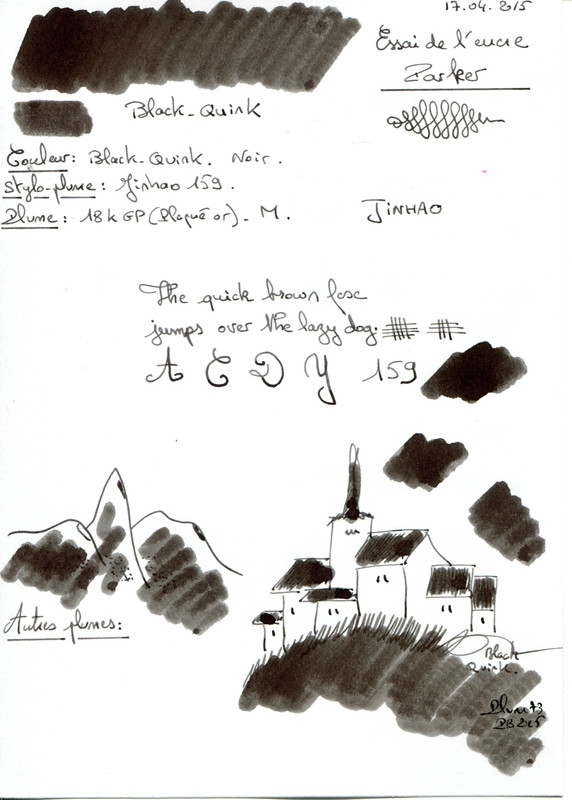 17.04.2015
Essai de l'encre
Parker
Black-Quink
Couleur: Black-Quink. Noir.
Stylo-plume: Jinhao 159.
Plume: 18k GP (Plaqué or). M.
JINHAO
The quick brown fox
jumps over the lazy dog.
A C D Y 159
Autres plumes:
Black
Quink.
Plume 73
2015